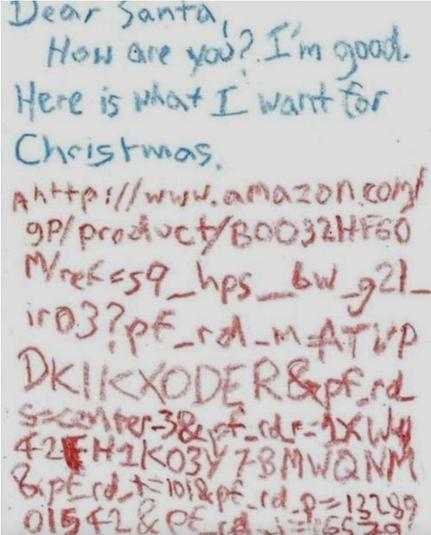 Dear Santa,
How are you? I'm good.
Here is what I want for
Christmas.
Ahttp://www.amazon.com/
gp/product/B0032HF60
M/ref=s9_hps_bw_g21_
ir03?pf_rd_m=ATVP
DKIKX0DER&pf_rd_
s=center-3&pf_rd_r=1XWy
42FH1K03Y78MWQNM
&pf_rd_t=101&pf_rd_p=13289
01542&pf_rd_i=16579